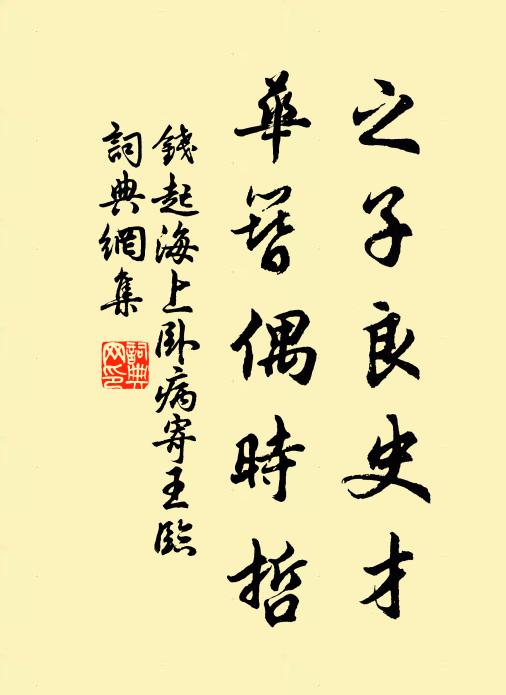 之子良史才
華簪偶時哲
錢起海上卧病寄王臨
詞典網集
詞典网印